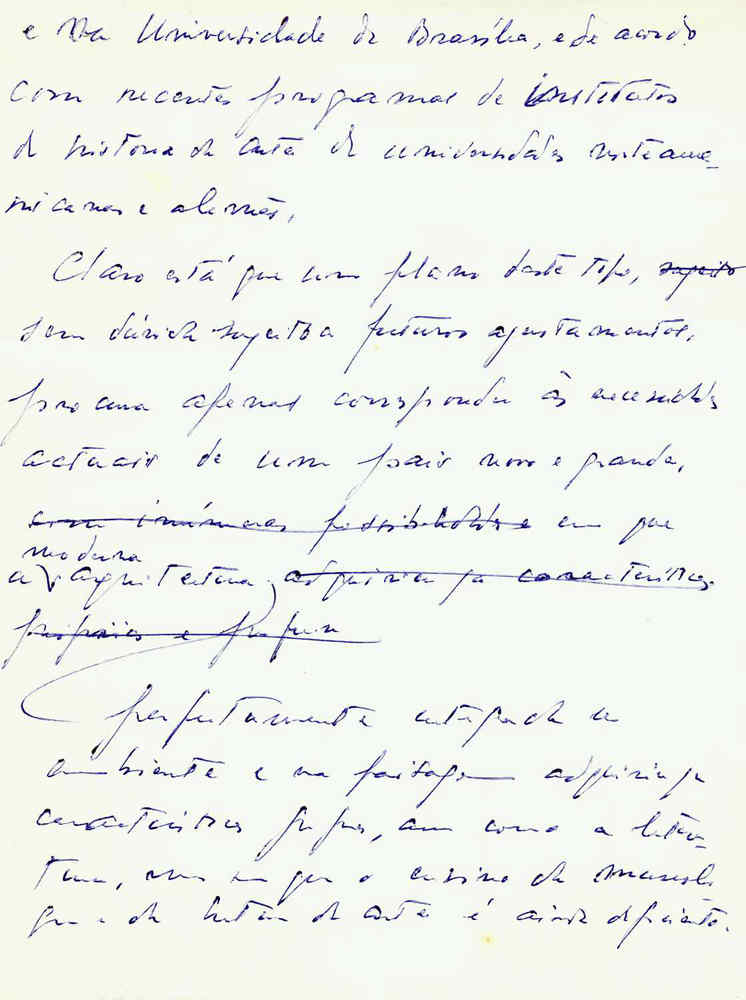 e na Universidade de Brasília, e de acordo
com recentes programas de institutos
de historia da arte de universidades norteame-
ricanas e alemãs.
Claro está que um plano deste tipo, sujeito
sem dúvida sujeito a futuros ajustamentos,
procura apenas corresponder às necessidades
actuais de um pais novo e grande,
com inúmeras possibilidades em que
moderna
a arquitectura adquiriu ja caracteristicas
proprias e
perfeitamente integrada no
ambiente e na paisagem adquiriu ja
caracteristicas proprias, assim como a litera-
tura, mas em que o ensino da museolo-
gia e da historia da arte é ainda deficiente.